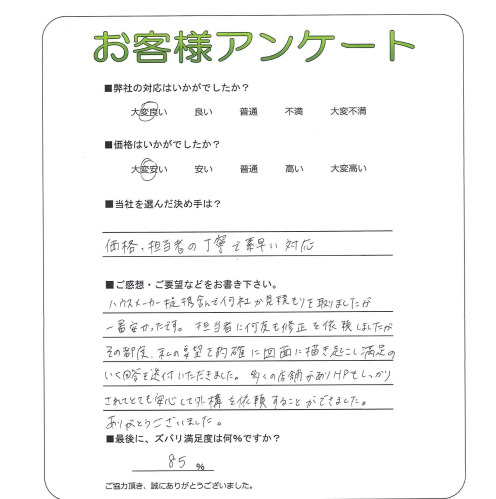 お客様アンケート
■弊社の対応はいかがでしたか？
大変良い 良い 普通 不満 大変不満
■価格はいかがでしたか？
大変安い 安い 普通 高い 大変高い
■当社を選んだ決め手は？
価格、担当者の丁寧で素早い対応
■ご感想・ご要望などをお書き下さい。
ハウスメーカー提携含めて何社か見積もりを取りましたが
一番安かったです。担当者に何度も修正を依頼しましたが
その都度、私の要望を的確に図面に描き起こし満足の
いく回答を送付いただきました。多くの店舗がありHPもしっかり
されてとても安心して外構を依頼することができました。
ありがとうございました。
■最後に、ズバリ満足度は何％ですか？
85 ％
ご協力頂き、誠にありがとうございました。